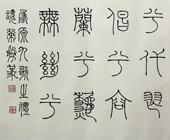 兮代舞
倡兮容
蘭兮秋
無絕兮
屈原九歌之禮